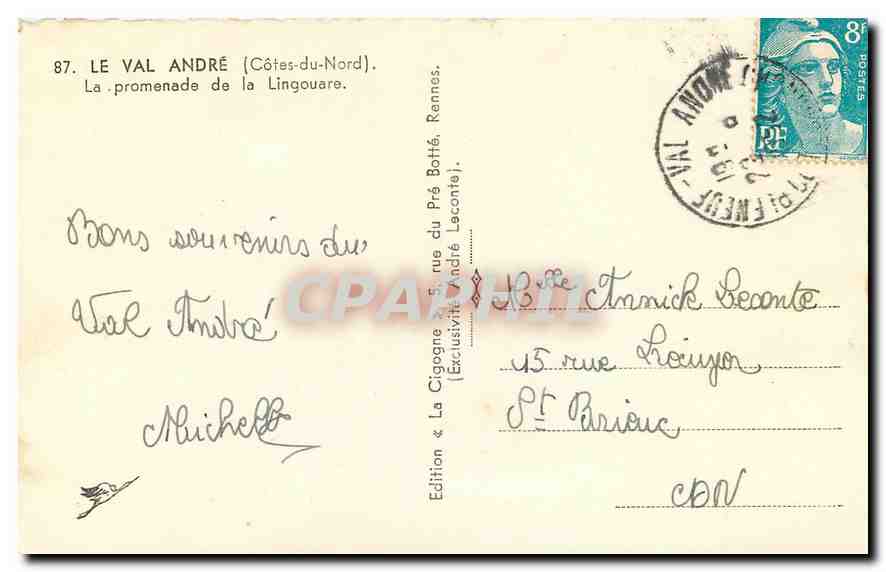 87. LE VAL ANDRÉ (Côtes-du-Nord).
La promenade de la Lingouare.
Bons souvenirs du
Val André
Michelle
Edition « La Cigogne » 5, rue du Pré Botté, Rennes.
(Exclusivité André Leconte).
CPAPHIL
PLENEUF-VAL ANDRE
8F
POSTES
RF
Mlle Annick Leconte
15 rue
St Brieuc
CDN